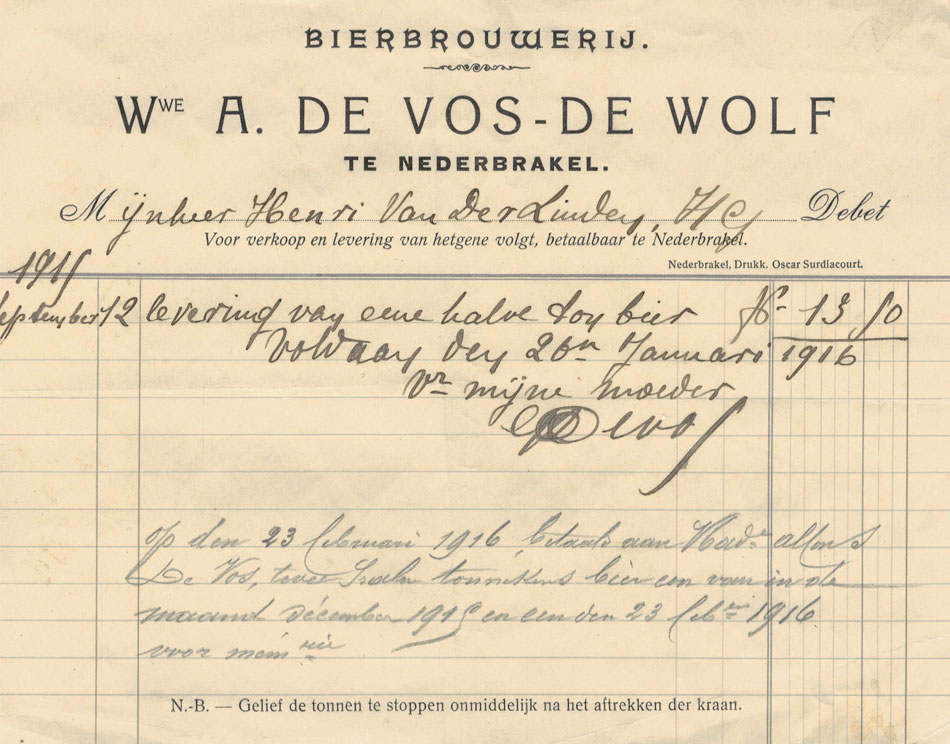 BIERBROUWERIJ.
Wwe A. DE VOS-DE WOLF
TE NEDERBRAKEL.
Mijnheer Henri Van Der Linden, Debet
Voor verkoop en levering van hetgene volgt, betaalbaar te Nederbrakel.
Nederbrakel, Drukk. Oscar Surdiacourt.
1915
September 12 levering van eene halve ton bier fr 13,50
Voldaan den 26n Januari 1916
Vr mijne moeder
Devos
op den 23 februari 1916, betaald aan Madme alfons
De Vos, twee tonnekens bier een van in de
maand décember 1915 en een den 23 febri 1916
voor mémrie
N.-B. — Gelief de tonnen te stoppen onmiddelijk na het aftrekken der kraan.